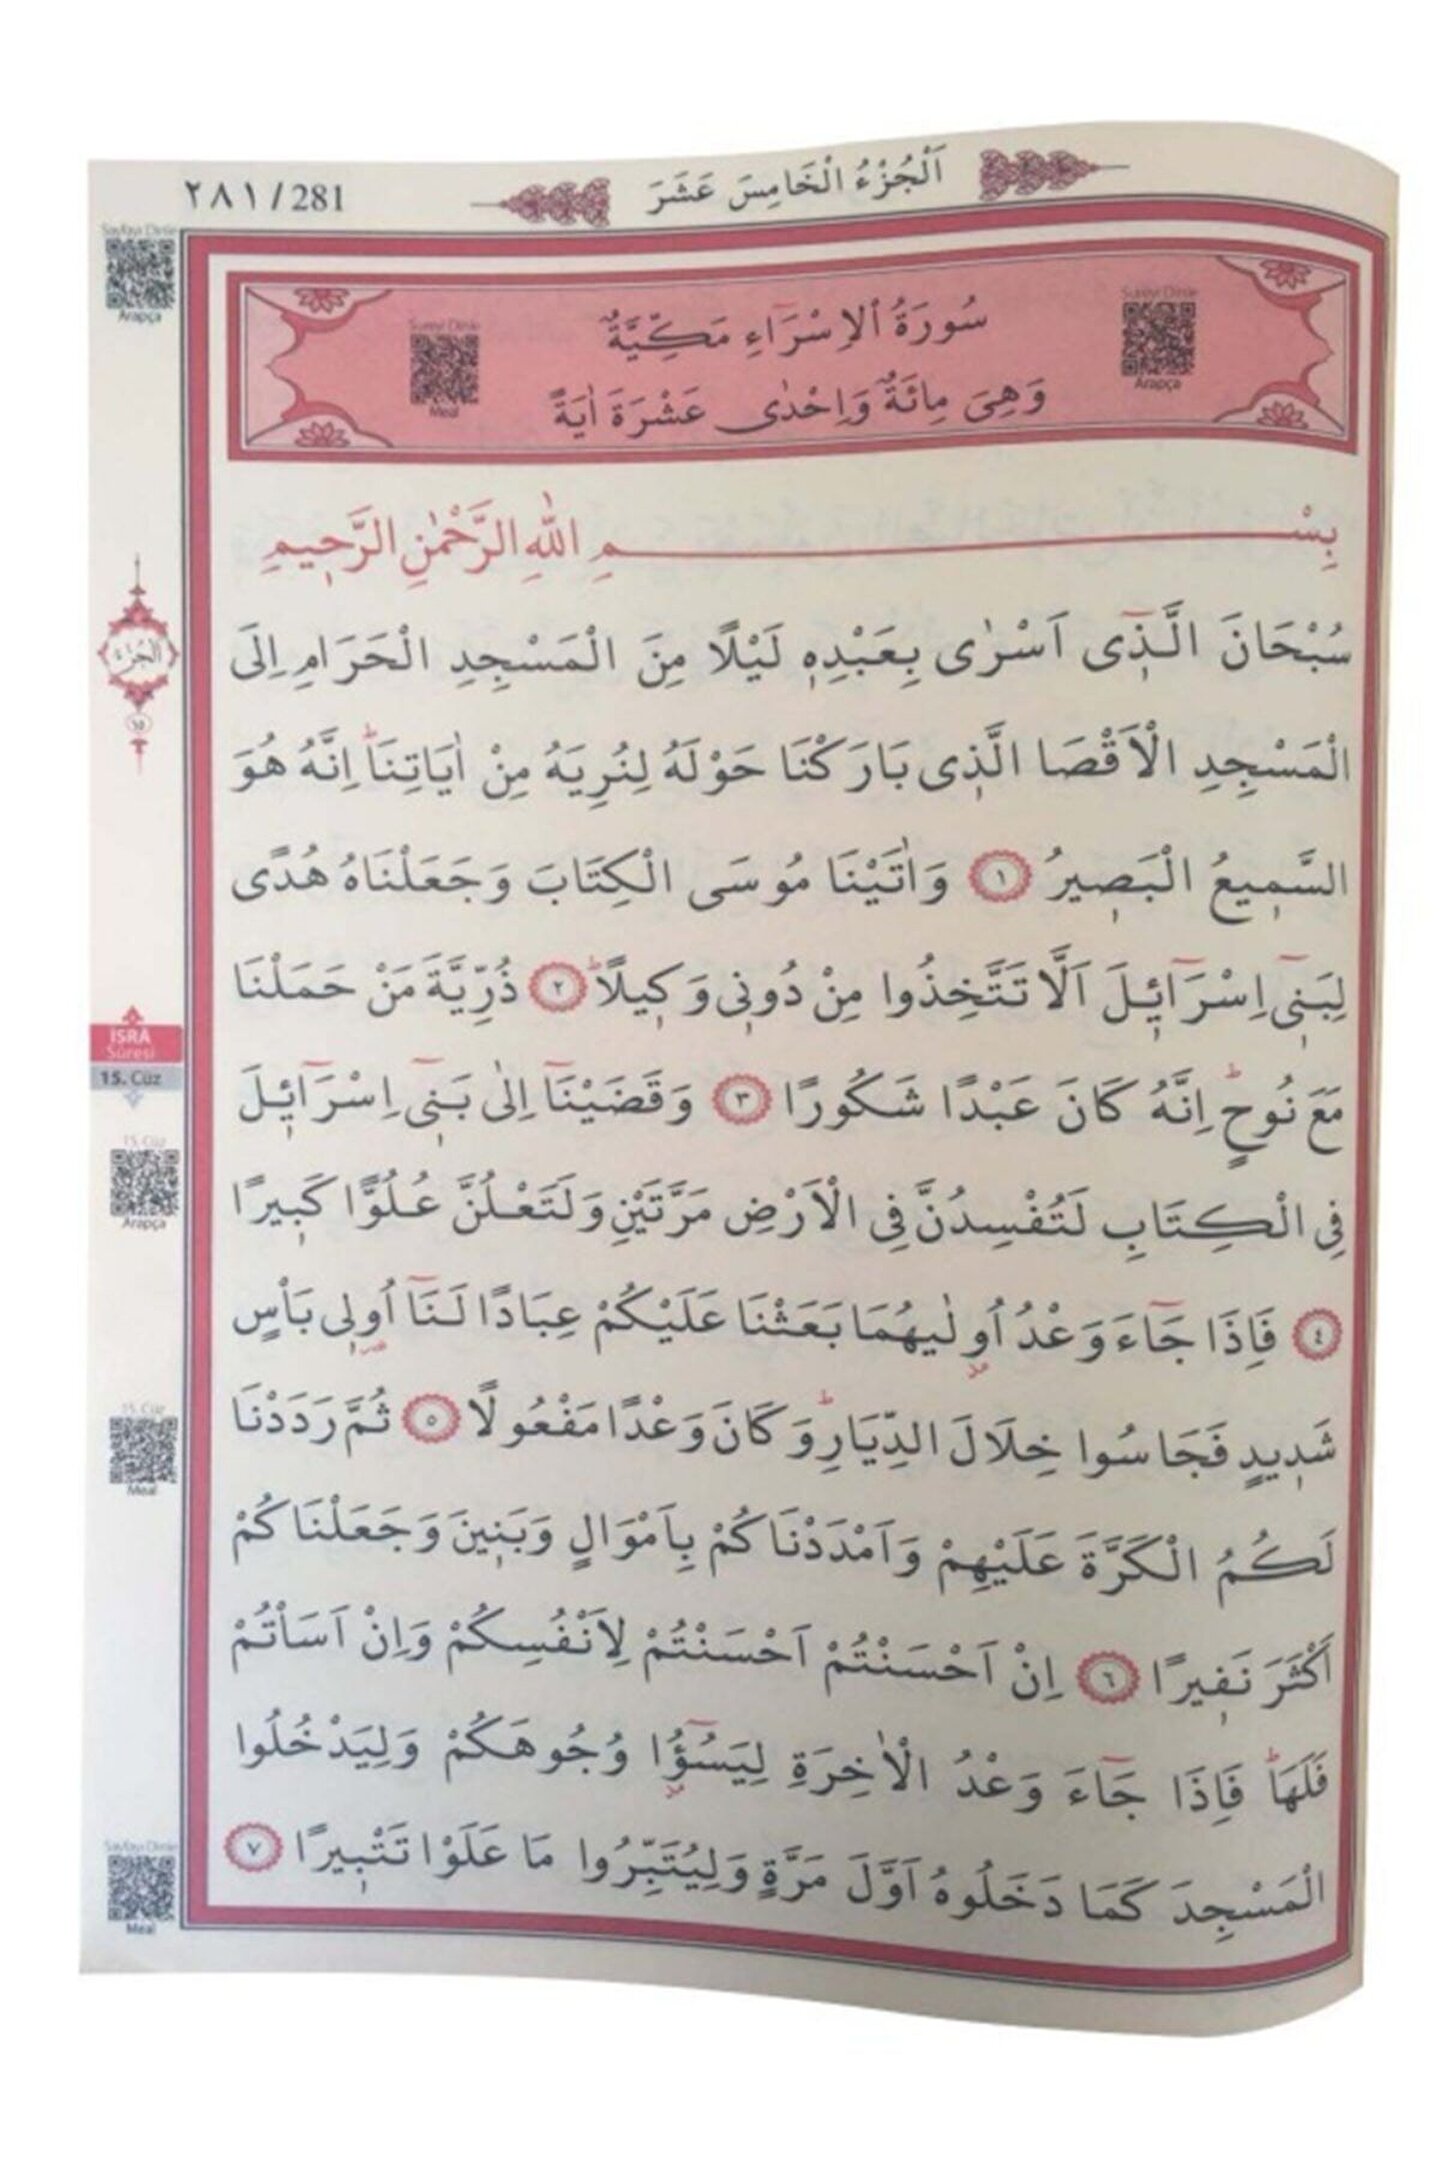 ٢٨١/281
اَلْجُزْءُ الْخَامِسَ عَشَرَ
Sayfayı Dinle
Arapça
Sureyi Dinle
Meal
Sureyi Dinle
Arapça
سُورَةُ الْاِسْرَٓاءِ مَكِّيَّةٌ
وَهِيَ مِائَةٌ وَاِحْدٰى عَشْرَةَ اٰيَةً
بِسْمِ اللّٰهِ الرَّحْمٰنِ الرَّح۪يمِ
سُبْحَانَ الَّذ۪ٓى اَسْرٰى بِعَبْدِه۪ لَيْلًا مِنَ الْمَسْجِدِ الْحَرَامِ اِلَى
الْمَسْجِدِ الْاَقْصَا الَّذ۪ى بَارَكْنَا حَوْلَهُ لِنُرِيَهُ مِنْ اٰيَاتِنَاۜ اِنَّهُ هُوَ
السَّم۪يعُ الْبَص۪يرُ ١ وَاٰتَيْنَا مُوسَى الْكِتَابَ وَجَعَلْنَاهُ هُدًى
لِبَن۪ٓى اِسْرَٓائ۪لَ اَلَّا تَتَّخِذُوا مِنْ دُون۪ى وَك۪يلًاۜ ٢ ذُرِّيَّةَ مَنْ حَمَلْنَا
مَعَ نُوحٍۜ اِنَّهُ كَانَ عَبْدًا شَكُورًا ٣ وَقَضَيْنَٓا اِلٰى بَن۪ٓى اِسْرَٓائ۪لَ
فِى الْكِتَابِ لَتُفْسِدُنَّ فِى الْاَرْضِ مَرَّتَيْنِ وَلَتَعْلُنَّ عُلُوًّا كَب۪يرًا
٤ فَاِذَا جَٓاءَ وَعْدُ اُو۫لٰيهُمَا بَعَثْنَا عَلَيْكُمْ عِبَادًا لَنَٓا اُو۬ل۪ى بَأْسٍ
شَد۪يدٍ فَجَاسُوا خِلَالَ الدِّيَارِۜ وَكَانَ وَعْدًا مَفْعُولًا ٥ ثُمَّ رَدَدْنَا
لَكُمُ الْكَرَّةَ عَلَيْهِمْ وَاَمْدَدْنَاكُمْ بِاَمْوَالٍ وَبَن۪ينَ وَجَعَلْنَاكُمْ
اَكْثَرَ نَف۪يرًا ٦ اِنْ اَحْسَنْتُمْ اَحْسَنْتُمْ لِاَنْفُسِكُمْ وَاِنْ اَسَأْتُمْ
فَلَهَاۜ فَاِذَا جَٓاءَ وَعْدُ الْاٰخِرَةِ لِيَسُٓؤُ۫ا وُجُوهَكُمْ وَلِيَدْخُلُوا
الْمَسْجِدَ كَمَا دَخَلُوهُ اَوَّلَ مَرَّةٍ وَلِيُتَبِّرُوا مَا عَلَوْا تَتْب۪يرًا ٧
الجزء
١٥
İSRÂ
Sûresi
15. Cüz
15. Cüz
Arapça
15. Cüz
Meal
Sayfayı Dinle
Meal